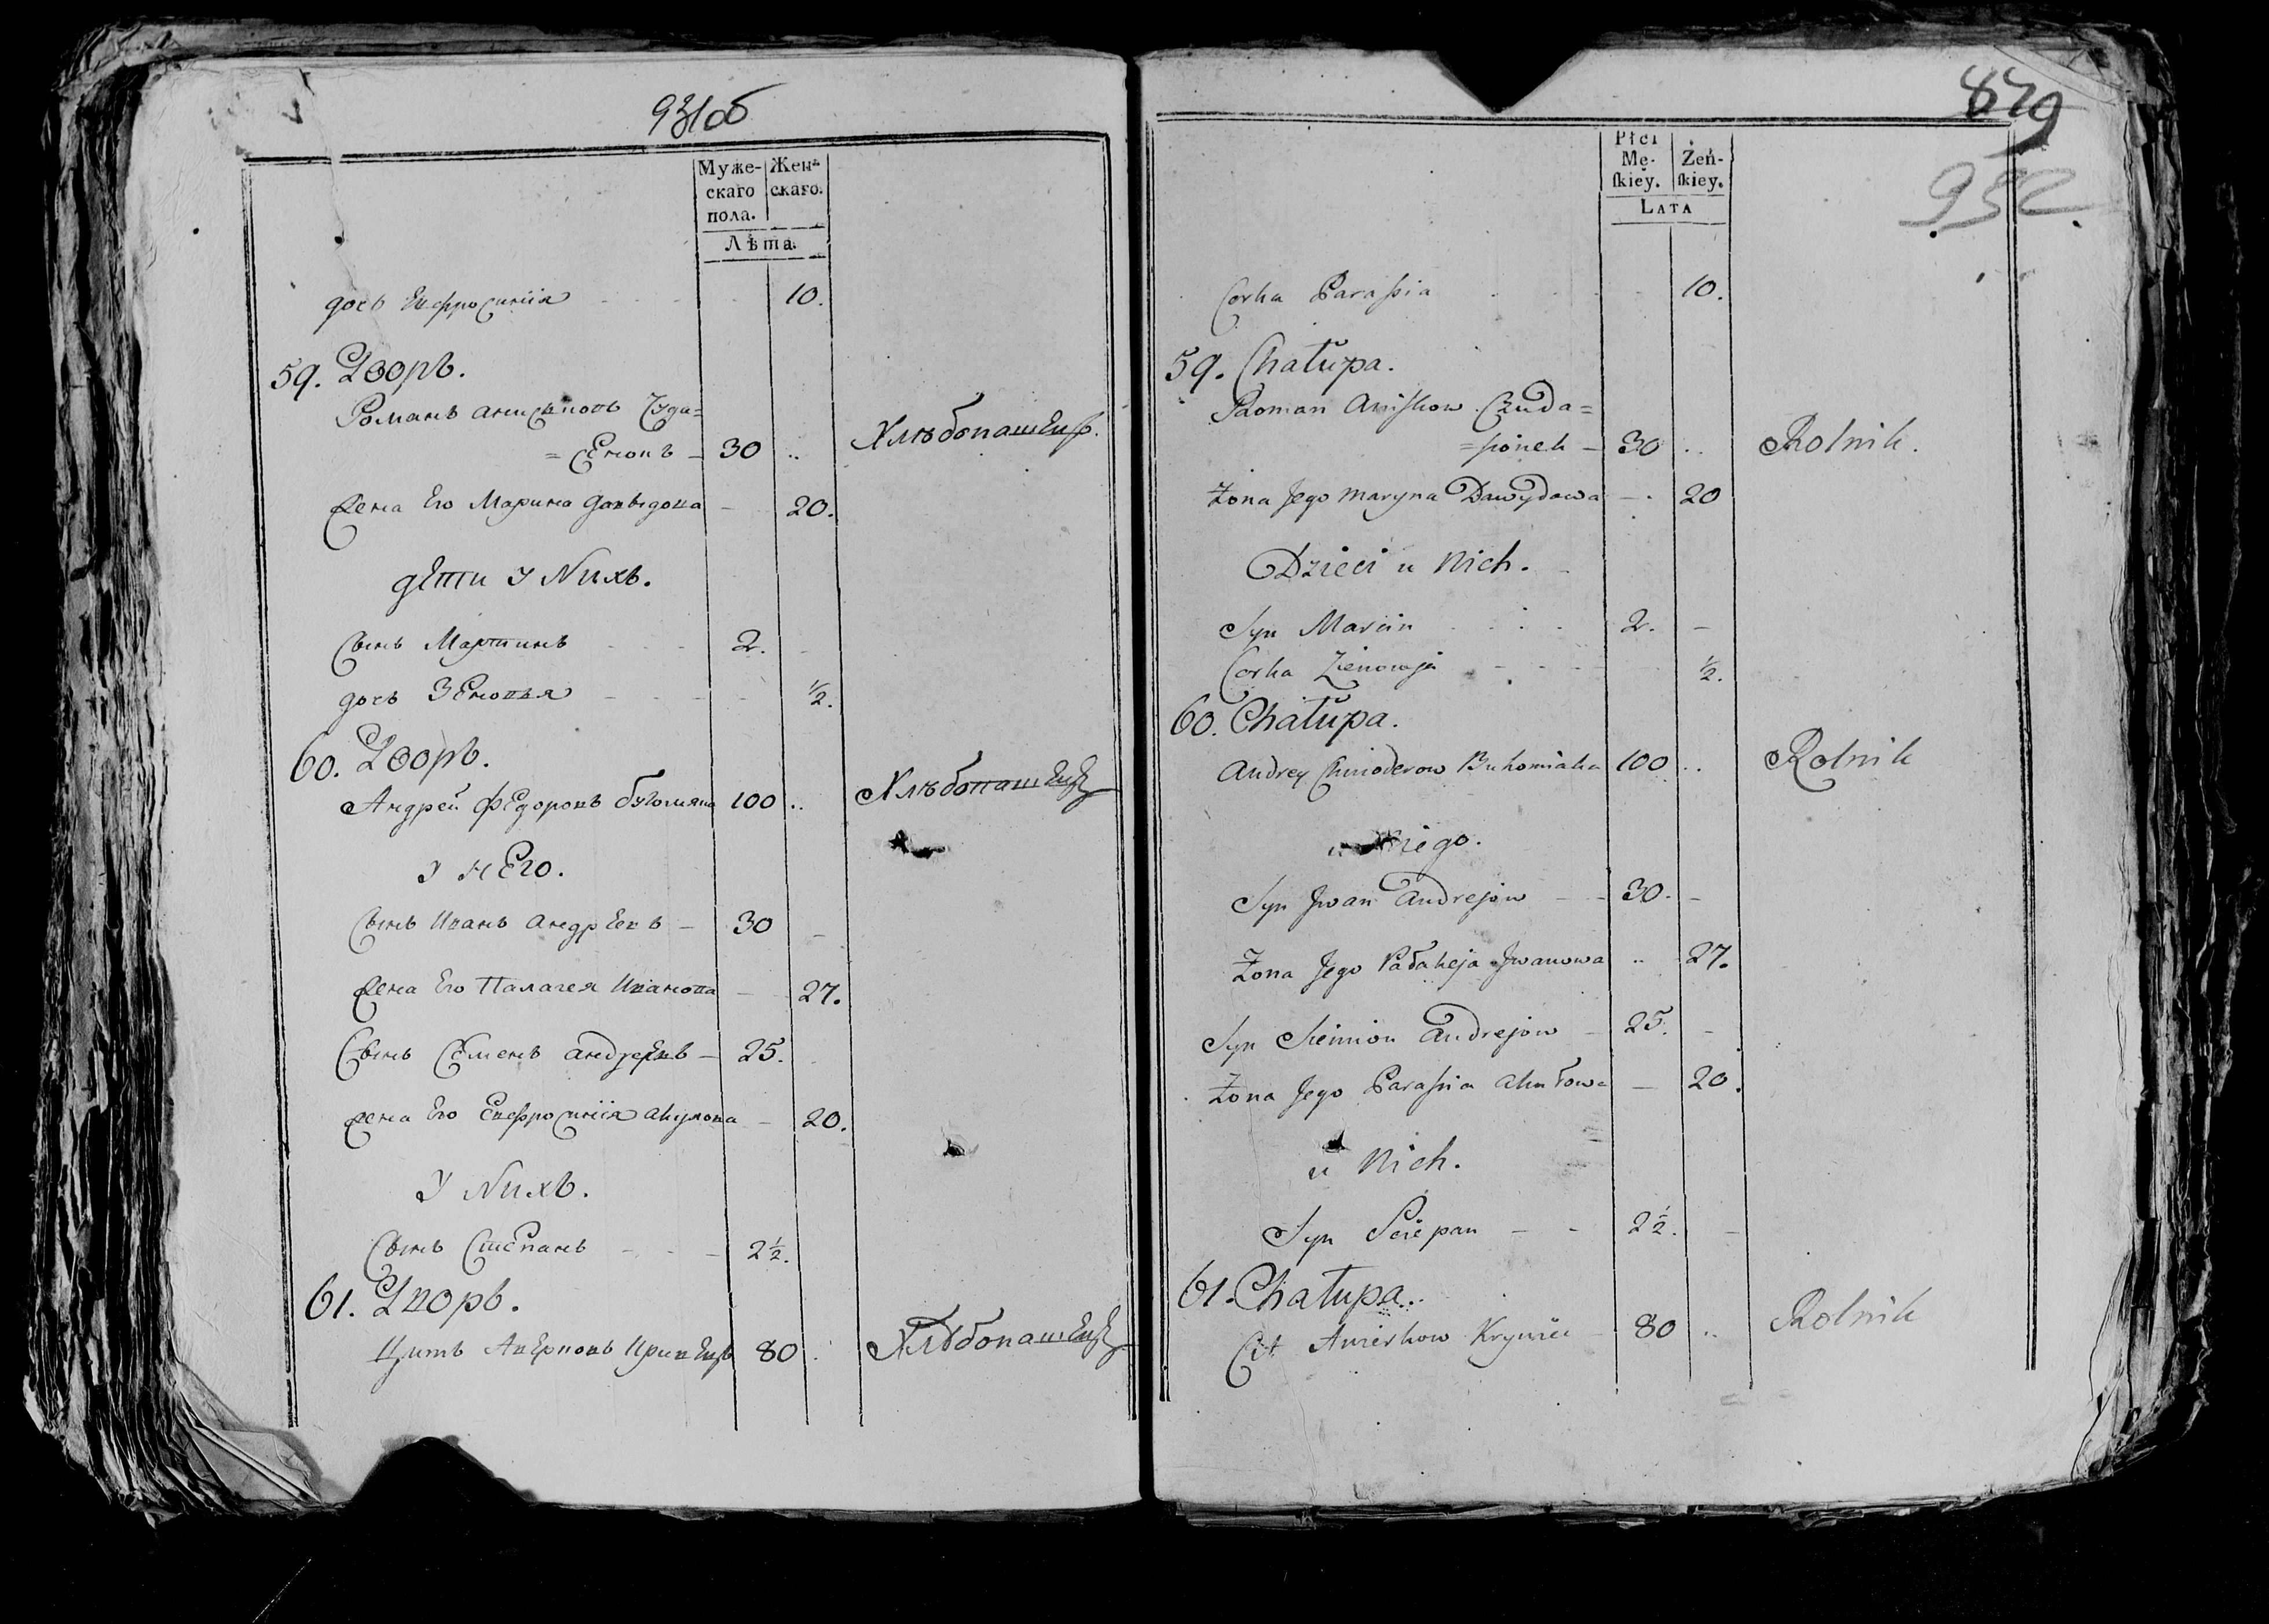 931об
Муже-
скаго
пола.
Жен-
скаго.
Лѣта.
дочь Евфросинія 10.
59. Дворъ.
Романъ Анисковъ Чуда=
=сеновъ 30 Хлѣбопашецъ.
Жена Его Марина Давыдова 20.
дети у Нихъ.
Сынъ Мартинъ 2.
дочь Зеновья ½.
60. Дворъ.
Андрей Федоровъ Бугомяка 100 Хлѣбопашецъ
у него.
Сынъ Иванъ Андреевъ 30
Жена Его Палагея Иванова 27.
Сынъ Семенъ Андреевъ 25.
Жена Его Евфросинія Акулова 20.
У Нихъ.
Сынъ Степанъ 2½.
61. Дворъ.
Цитъ 80 Хлѣбопашецъ
829
932
Płci
Mę-
skiey.
Żeń-
skiey.
LATA
Corka Parassia 10.
59. Chałupa.
Roman Aniskow Czuda=
=sionek 30 Rolnik.
Żona Jego Maryna Dawydowa 20
Dzieci u Nich.
Syn Marcin 2.
Corka Zienowja ½.
60. Chałupa.
Andrey Chwioderow Buhomiaka 100 Rolnik
u Niego.
Syn Jwan Andrejow 30.
Żona Jego Pałaheja Jwanowa 27.
Syn Siemion Andrejow 25.
Żona Jego Parassia Akułowa 20.
u Nich.
Syn Sciepan 2½.
61. Chałupa.
Cit 80 Rolnik